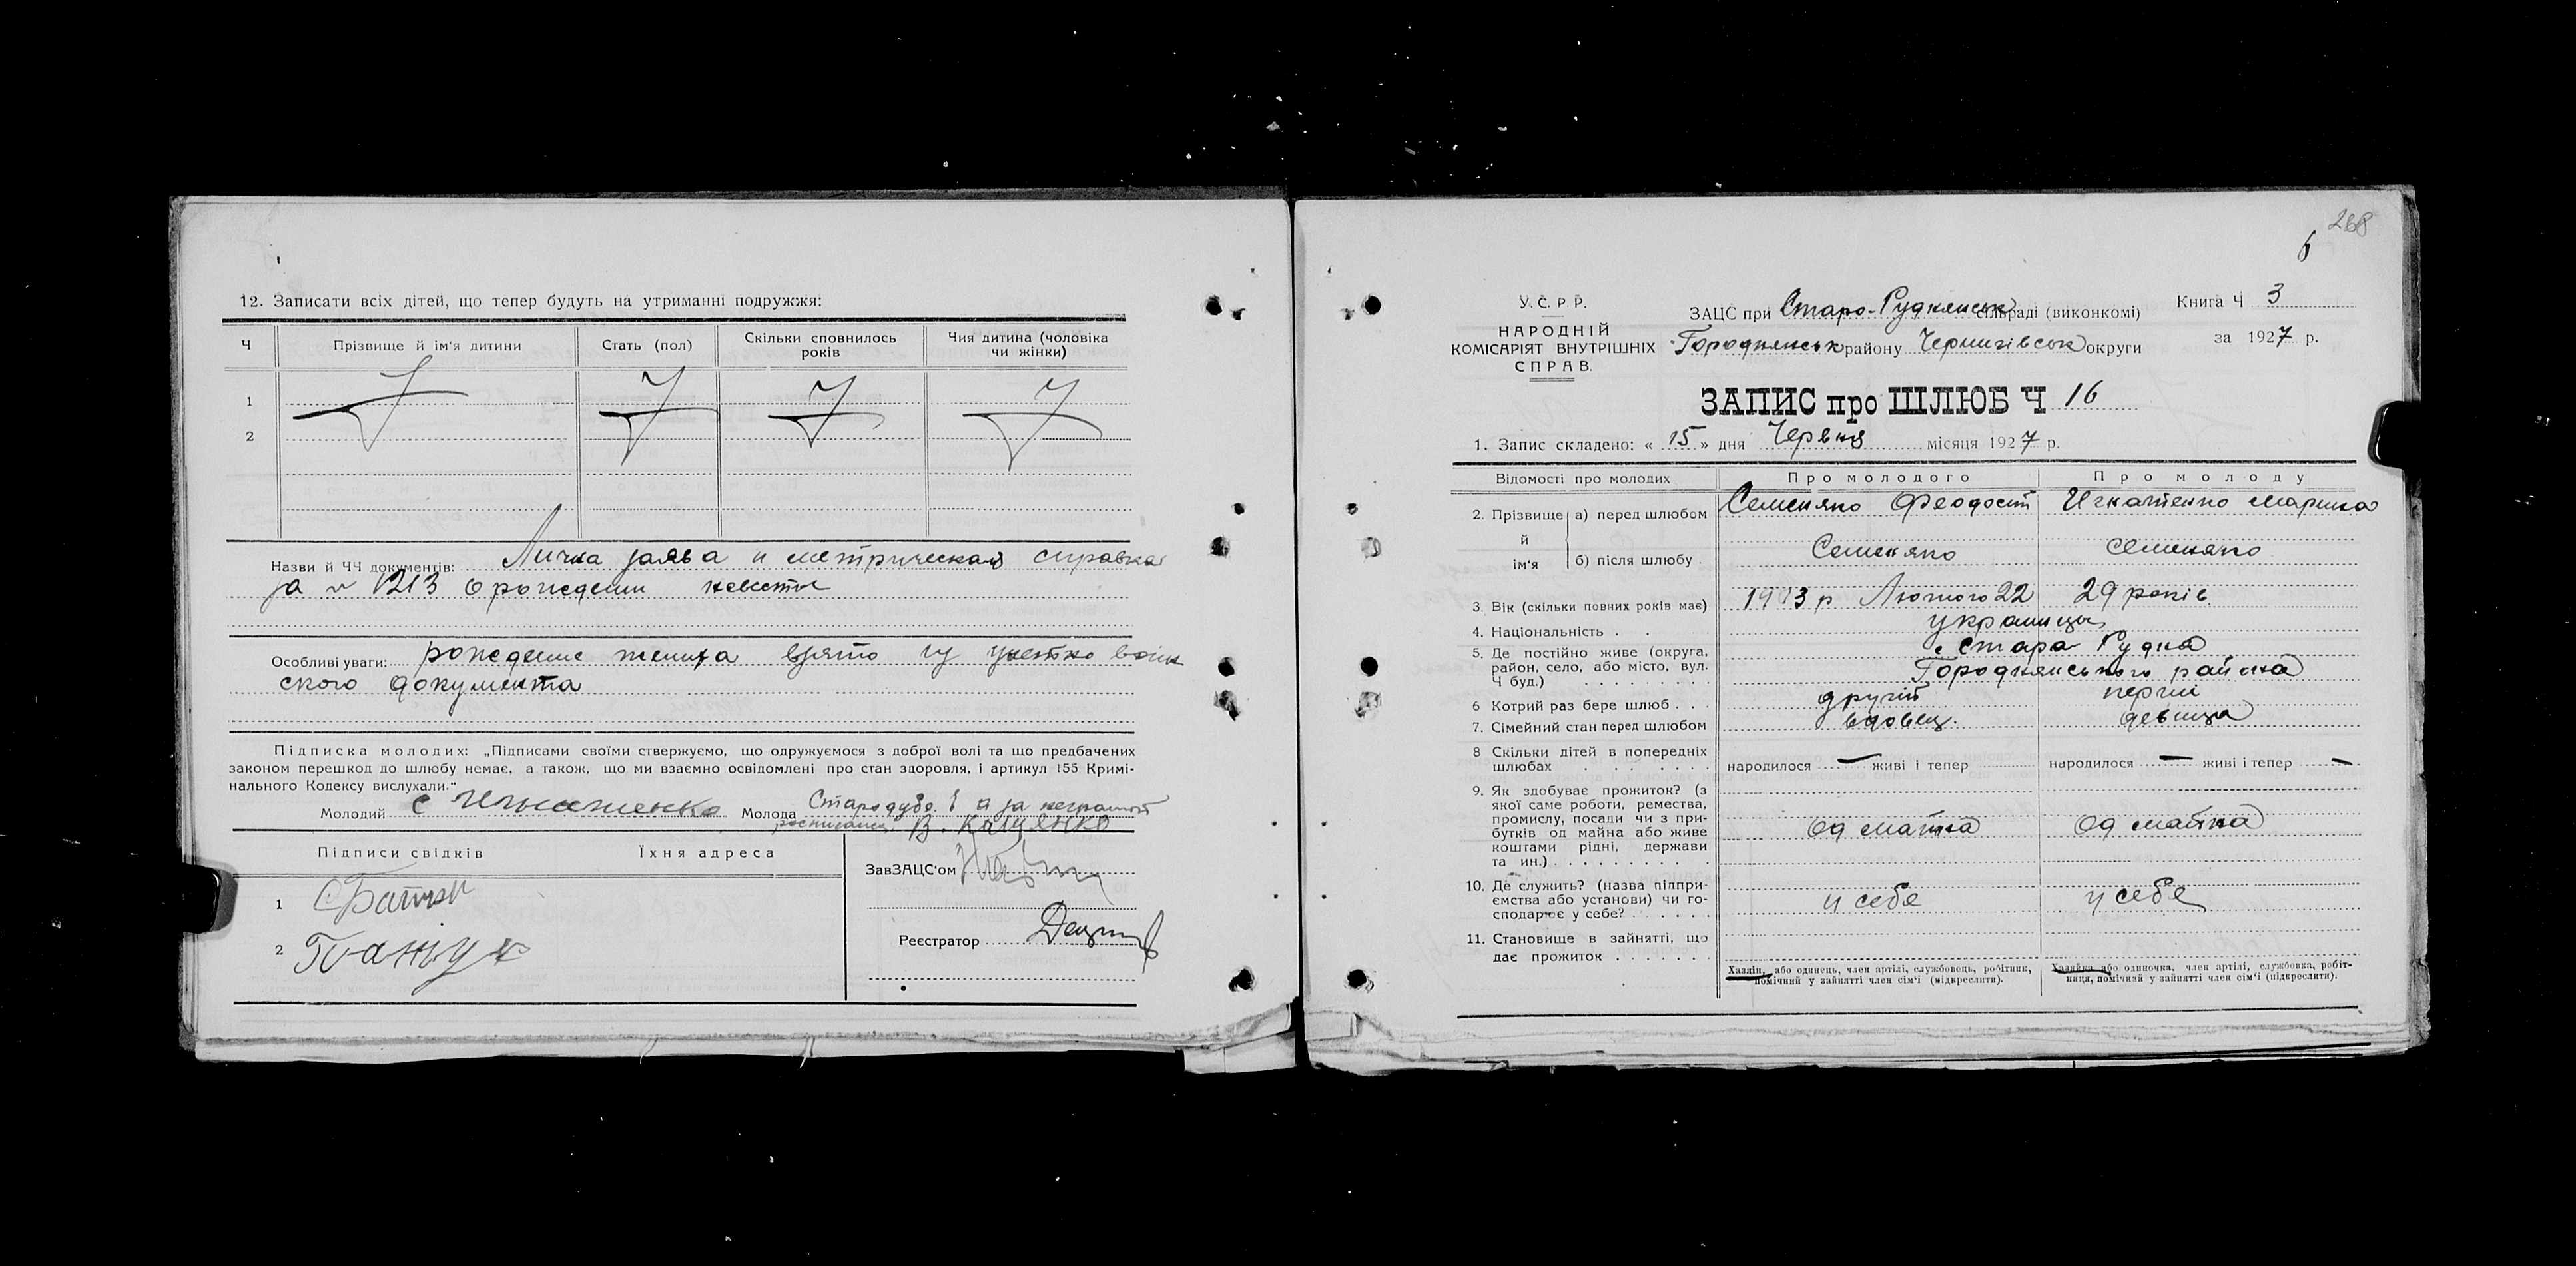 12. Записати всіх дітей, що тепер будуть на утриманні подружжя:
Ч Прізвище й ім'я дитини Стать (пол) Скільки сповнилось років Чия дитина (чоловіка чи жінки)
1
2
Назви й ЧЧ документів: Лична заява и метрическая справка
за № 1213 о рождении невесты
Особливі уваги: рождение жениха взято
ского документа
Підписка молодих: „Підписами своїми ствержуємо, що одружуємося з доброї волі та що предбачених
законом перешкод до шлюбу немає, а також, що ми взаємно освідомлені про стан здоровля, і артикул 155 Кримі-
нального Кодексу вислухали."
Молодий Молода
В. Кацянко
Підписи свідків Їхня адреса
ЗавЗАЦС'ом
1
2
Реєстратор
268
6
У.С.Р.Р.
НАРОДНІЙ
КОМІСАРІЯТ ВНУТРІШНІХ
СПРАВ.
ЗАЦС при Старо-Руднянськ сільраді (виконкомі)
Городнянськ району Чернигівськ округи
Книга Ч 3
за 1927 р.
ЗАПИС про ШЛЮБ Ч 16
1. Запис складено: « 15 » дня Червня місяця 1927 р.
Відомості про молодих Про молодого Про молоду
2. Прізвище й ім'я а) перед шлюбом Семеняко Феодосий Игнатенко Марина
б) після шлюбу . Семеняко Семеняко
3. Вік (скільки повних років має) Лютого 22 29 років
4. Національність . . украинцы
5. Де постійно живе (округа, район, село, або місто, вул. Ч буд.) с Стара Рудня
Городнянського района
6 Котрий раз бере шлюб . . . другий перши
7. Сімейний стан перед шлюбом вдовец. девица
8 Скільки дітей в попередніх шлюбах народилося — живі і тепер народилося — живі і тепер —
9. Як здобуває прожиток? (з
якої саме роботи, ремества,
промислу, посади чи з при-
бутків од майна або живе
коштами рідні, держави
та ин.) Од майна Од майна
10. Де служить? (назва підпри-
ємства або установи) чи го-
сподарює у себе? и себе у себе
11. Становище в зайнятті, що
дає прожиток
Хазяїн, або одинець, член артілі, службовець, робітник,
помічний у зайнятті член сім'ї (підкреслити).
Хазяйка або одиночка, член артілі, службовка, робіт-
ниця, помічний у зайнятті член сім'ї (підкреслити).